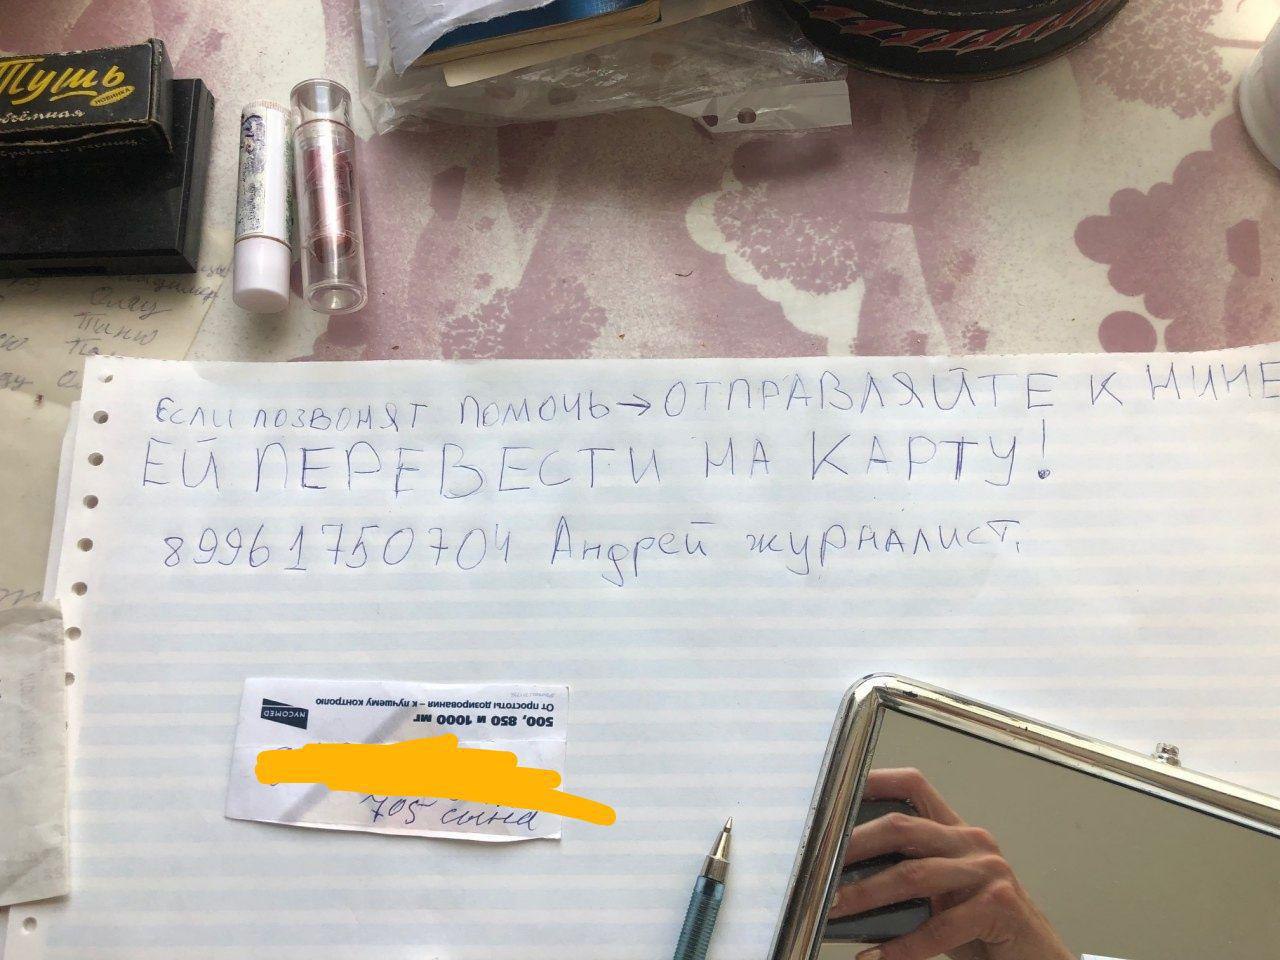 Тушь
НОВИНКА
объёмная
Олау
Таню
ЕСЛИ ПОЗВОНЯТ ПОМОЧЬ → ОТПРАВЛЯЙТЕ К НИНЕ
ЕЙ ПЕРЕВЕСТИ НА КАРТУ!
89961750704 Андрей журналист.
От простоты дозирования – к лучшему контролю
NYCOMED
500, 850 и 1000 мг
705 сына